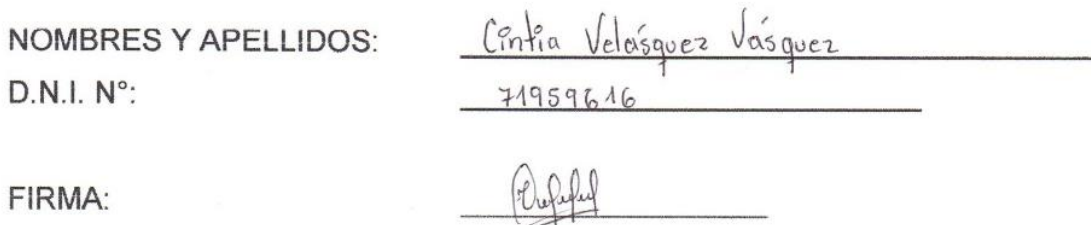 NOMBRES Y APELLIDOS: Cintia Velásquez Vásquez
D.N.I. N°: 71959616
FIRMA: